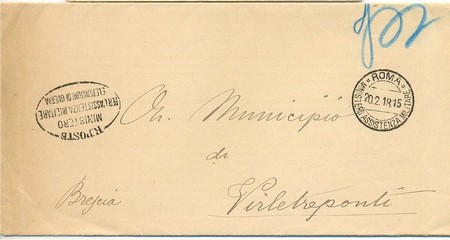 R. POSTE
MINISTERO
PER L'ASSISTENZA MILITARE
E LE PENSIONI DI GUERRA
ROMA
20.2.18 15
MINISTERI ASSISTENZA MILITARE
On. Municipio
di
Brescia
Virletreponti